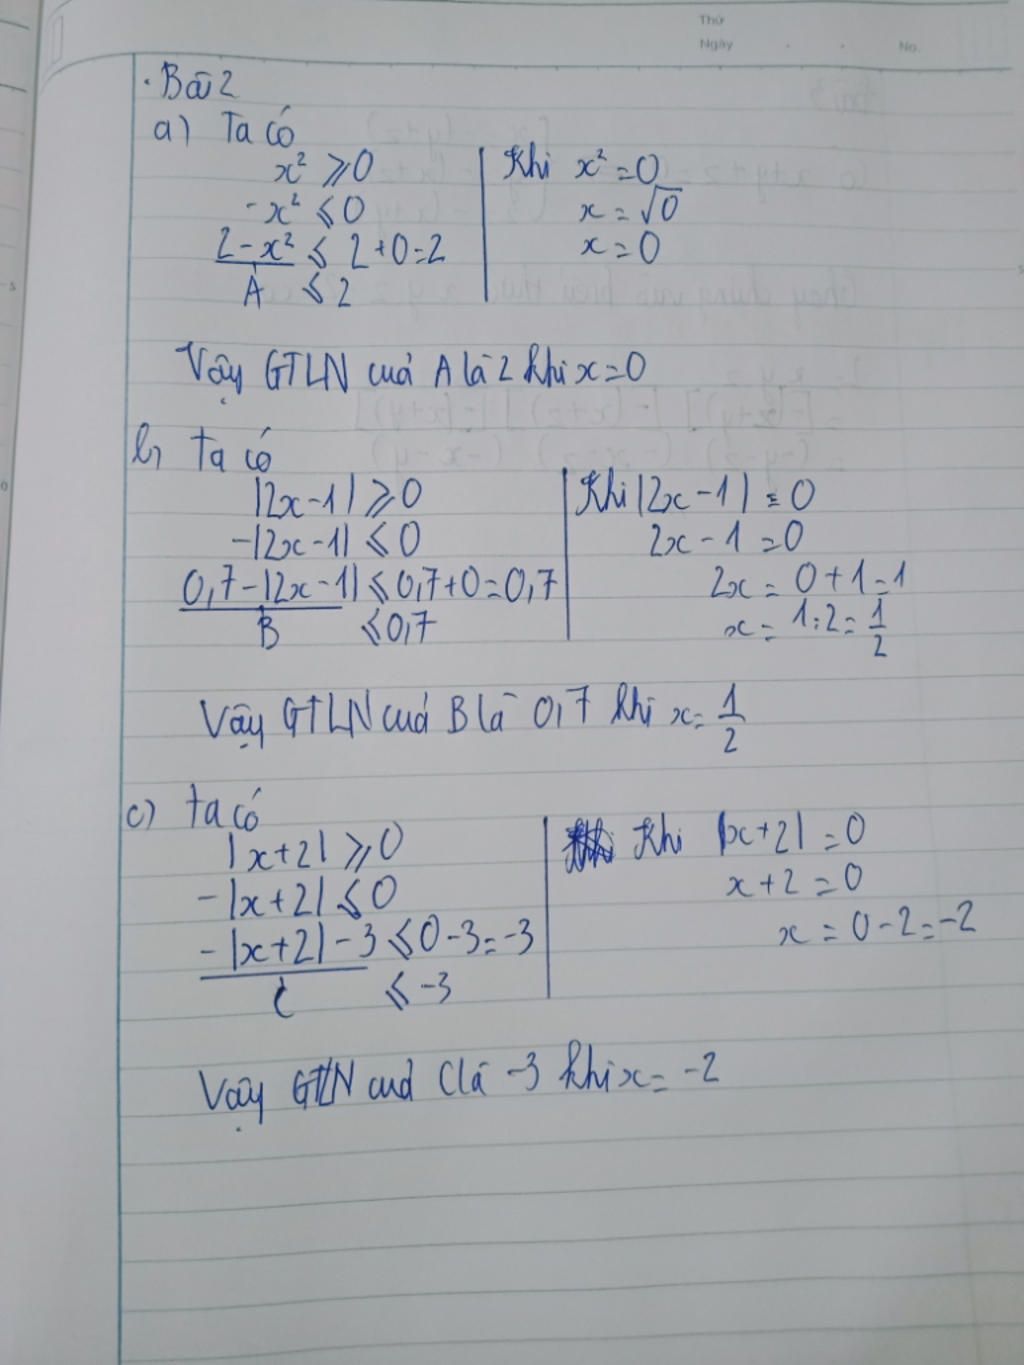 Thứ
Ngày . . No.
. Bài 2
a) Ta có
x² ⩾ 0
-x² ⩽ 0
2-x² ⩽ 2+0=2
A ⩽ 2
Khi x²=0
x=√0
x=0
Vậy GTLN cuả A là 2 khi x=0
b) Ta có
|2x-1| ⩾ 0
-|2x-1| ⩽ 0
0,7-|2x-1| ⩽ 0,7+0=0,7
B ⩽ 0,7
Khi |2x-1| = 0
2x-1=0
2x=0+1=1
x=1:2=1/2
Vậy GTLN cuả B là 0,7 khi x=1/2
c) Ta có
|x+2| ⩾ 0
-|x+2| ⩽ 0
-|x+2|-3 ⩽ 0-3=-3
C ⩽ -3
Khi |x+2|=0
x+2=0
x=0-2=-2
Vậy GTLN cuả C là -3 khi x=-2